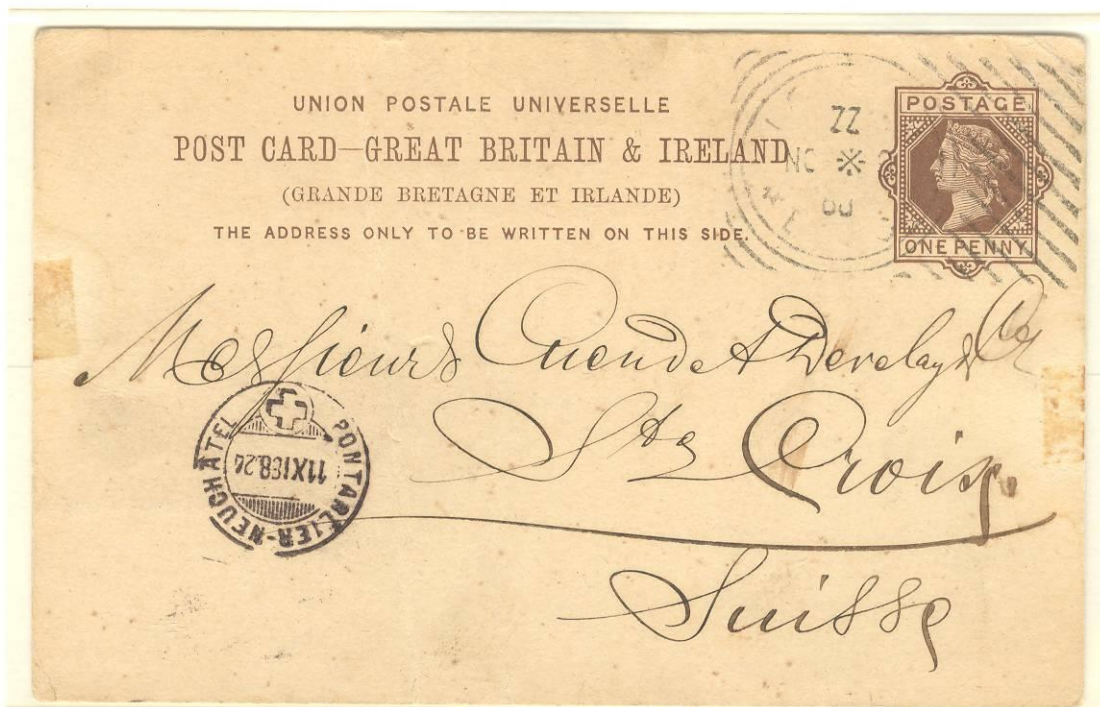 UNION POSTALE UNIVERSELLE
POST CARD—GREAT BRITAIN & IRELAND
(GRANDE BRETAGNE ET IRLANDE)
THE ADDRESS ONLY TO BE WRITTEN ON THIS SIDE.
POSTAGE
ONE PENNY
ZZ
NO
Messieurs Cuendet Develay & Co
Ste Croix
Suisse
PONTARLIER-NEUCHATEL
11XI88.24